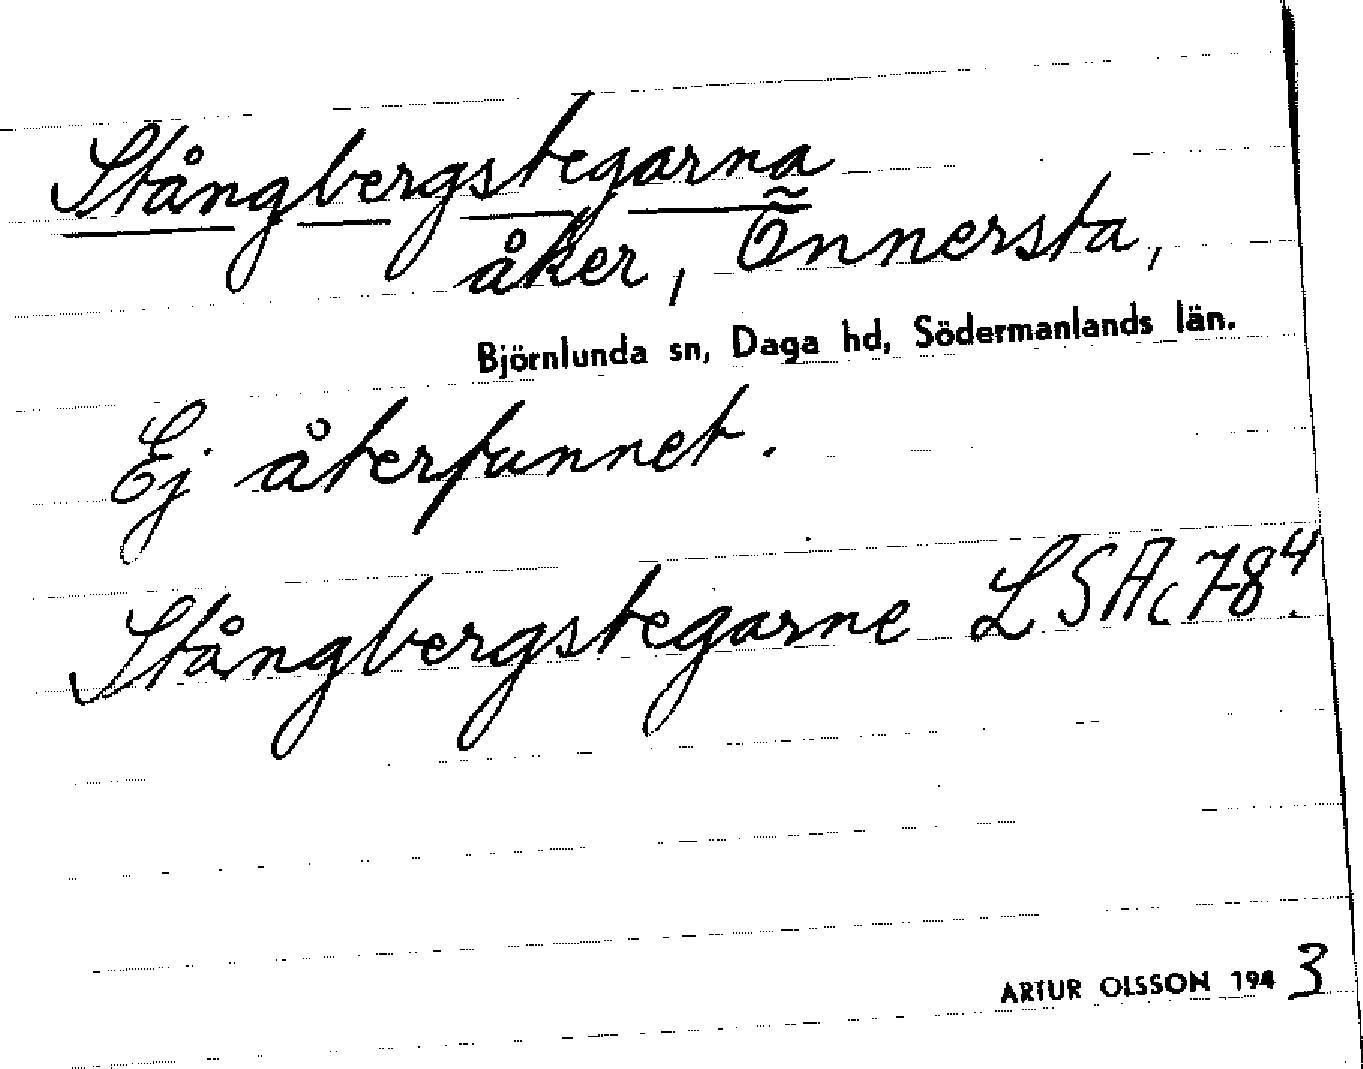 Stångbergstegarna
åker, Önnersta,
Björnlunda sn, Daga hd, Södermanlands län.
Ej återfunnet.
Stångbergstegarne LSAc 78⁴.
ARTUR OLSSON 1943